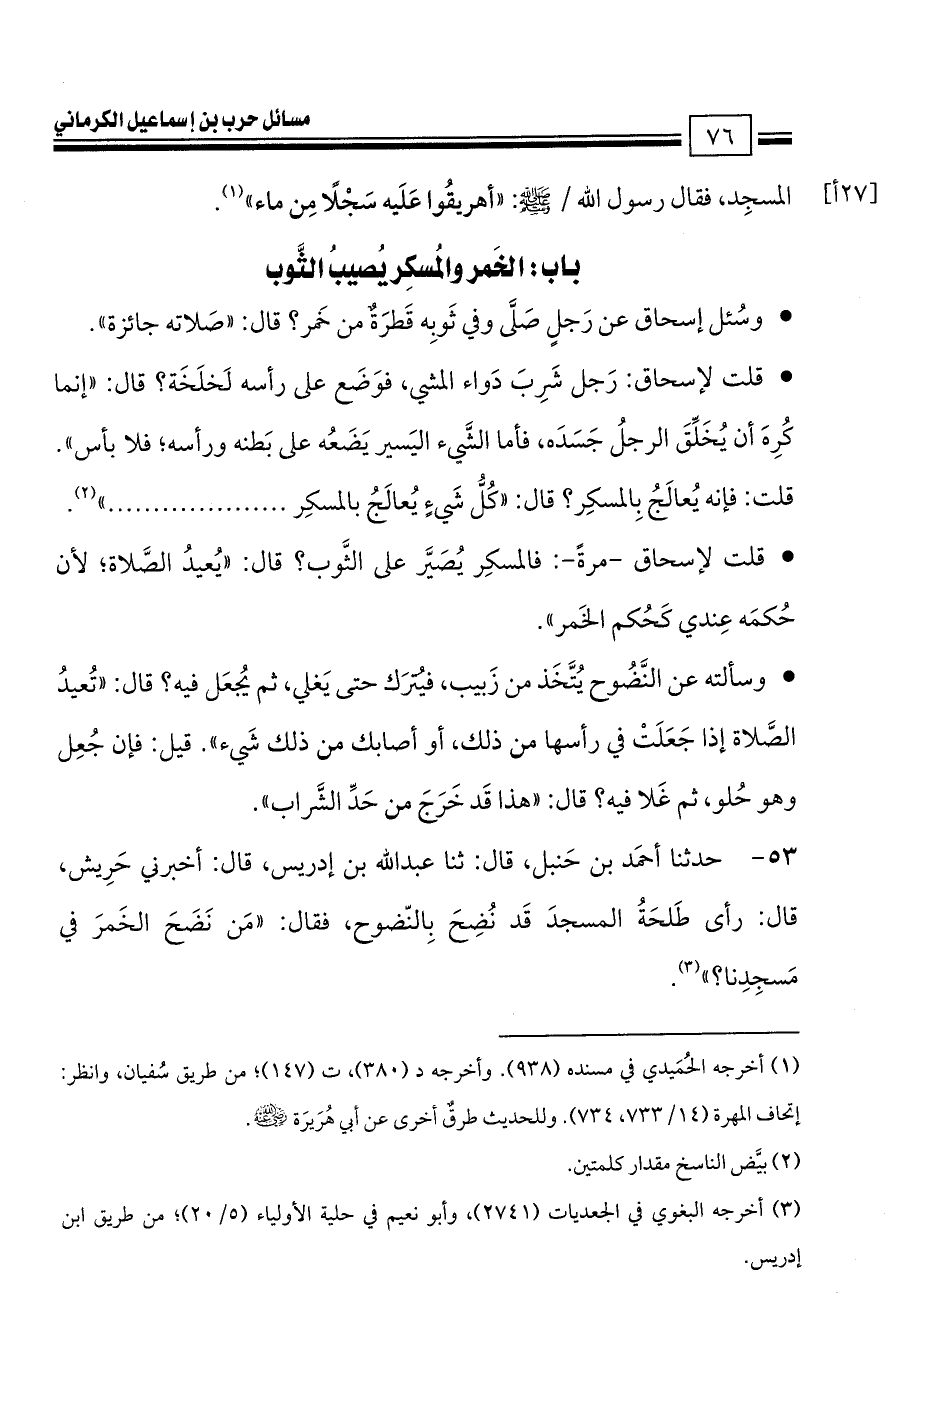 مسائل حرب بن إسماعيل الكرماني
٧٦
[٢٧أ] المسجِد، فقال رسول الله / ﷺ: «أهريقُوا عَلَيه سَجْلًا مِن ماء»(١).
باب: الخَمر والمُسكِر يُصيبُ الثَّوب
• وسُئل إسحاق عن رَجلٍ صَلَّى وفي ثَوبِه قَطرَةٌ من خَمر؟ قال: «صَلاته جائزة».
• قلت لإسحاق: رَجل شَرِبَ دَواء المشي، فوَضَع على رأسه لَخلَخَة؟ قال: «إنما
كُرِهَ أن يُخَلِّقَ الرجلُ جَسَدَه، فأما الشَّيء اليَسير يَضَعُه على بَطنه ورأسه؛ فلا بأس».
قلت: فإنه يُعالَجُ بِالمسكِر؟ قال: «كُلُّ شَيءٍ يُعالَجُ بالمسكِر ....................»(٢).
• قلت لإسحاق -مرةً-: فالمسكِر يُصَيَّر على الثَّوب؟ قال: «يُعيدُ الصَّلاة؛ لأن
حُكمَه عِندي كَحُكم الخَمر».
• وسألته عن النَّضُوح يُتَّخَذ من زَبيب، فيُترَك حتى يَغلي، ثم يُجعَل فيه؟ قال: «تُعيدُ
الصَّلاة إذا جَعَلَتْ في رأسها من ذلك، أو أصابك من ذلك شَيء». قيل: فإن جُعِل
وهو حُلو، ثم غَلا فيه؟ قال: «هذا قَد خَرَجَ من حَدِّ الشَّراب».
٥٣- حدثنا أحمَد بن حَنبل، قال: ثنا عبدالله بن إدريس، قال: أخبرني حَرِيش،
قال: رأى طَلحَةُ المسجدَ قَد نُضِحَ بِالنّضوح، فقال: «مَن نَضَحَ الخَمرَ في
مَسجِدِنا؟»(٣).
(١) أخرجه الحُمَيدي في مسنده (٩٣٨). وأخرجه د (٣٨٠)، ت (١٤٧)؛ من طريق سُفيان، وانظر:
إتحاف المهرة (١٤/ ٧٣٣، ٧٣٤). وللحديث طرقٌ أخرى عن أبي هُرَيرَة ﷺ.
(٢) بيَّض الناسخ مقدار كلمتين.
(٣) أخرجه البغوي في الجعديات (٢٧٤١)، وأبو نعيم في حلية الأولياء (٥/ ٢٠)؛ من طريق ابن
إدريس.